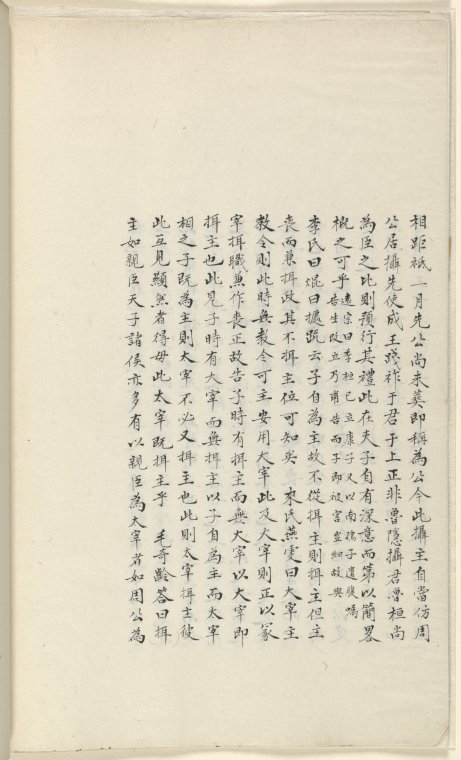 相距祇一月先公尚未葬即稱為公今此攝主自當仿周
公居攝先使成王踐祚于君于上正非魯隱攝君魯桓尚
為臣之比則預行其禮此在夫子自有深意而第以簡畧
概之可乎遠宗曰季桓已立康子又以南孺子遺腹囑
告生改立乃甫告而子即被害豈細故與
李氏曰焜曰據既云子自為主故不從揖主則揖主但主
喪而兼揖政其不揖主位可知矣 來氏燕雯曰大宰主
教令則此時無教令可主安用大宰此及大宰則正以冢
宰揖職兼作喪正故告子時有揖主而無大宰以大宰即
揖主也此見子時有大宰而無揖主以子自為主而大宰
相之子既為主則大宰不必又揖主也此則太宰揖主彼
此互見顯然者得毋此太宰既揖主乎 毛奇齡答曰揖
主如親臣天子諸侯亦多有以親臣為太宰者如周公為